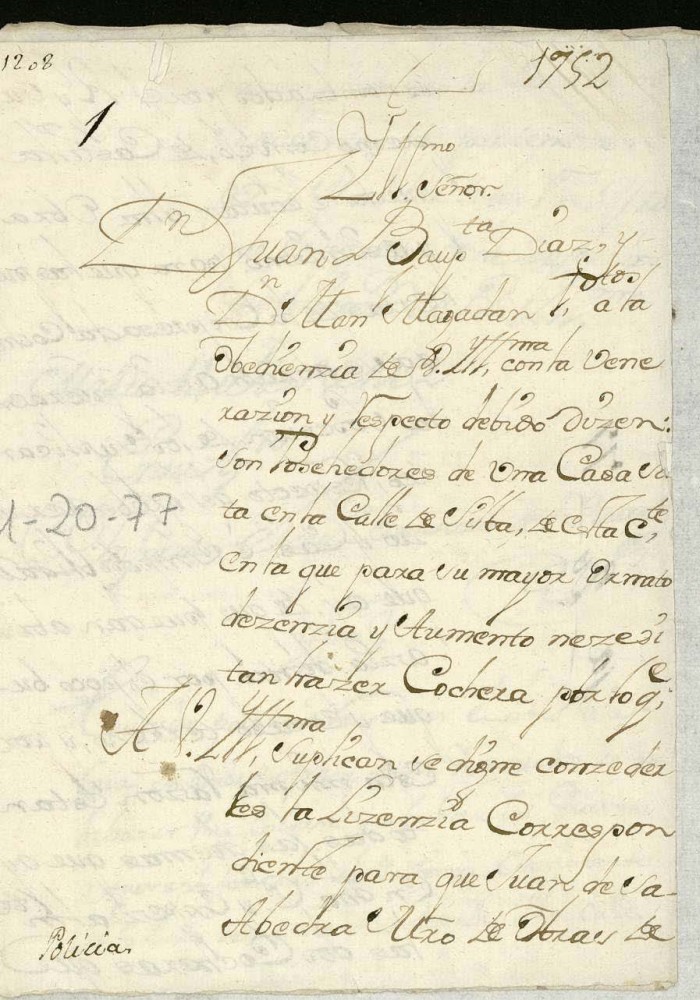 1208
1752
1
Yllmo
Señor.
Dn Juan Bapta Diaz, y
Dn Man Maradan Ptos, a la
Obedienzia de V. Yllma, con la vene
razion y Respecto debido Dizen:
son Posehedores de vna Casa si
ta en la Calle de Silba, de esta Cte,
en la que para su mayor Ornato
dezenzia y Aumento nezesi
tan hazer Cochera por lo qe,
A V. Yllma, Suplican se digne conzeder
les la Lizenzia Correspon
diente para que Juan de Sa-
Abedra Mro de Obras de
1-20-77
Policia.